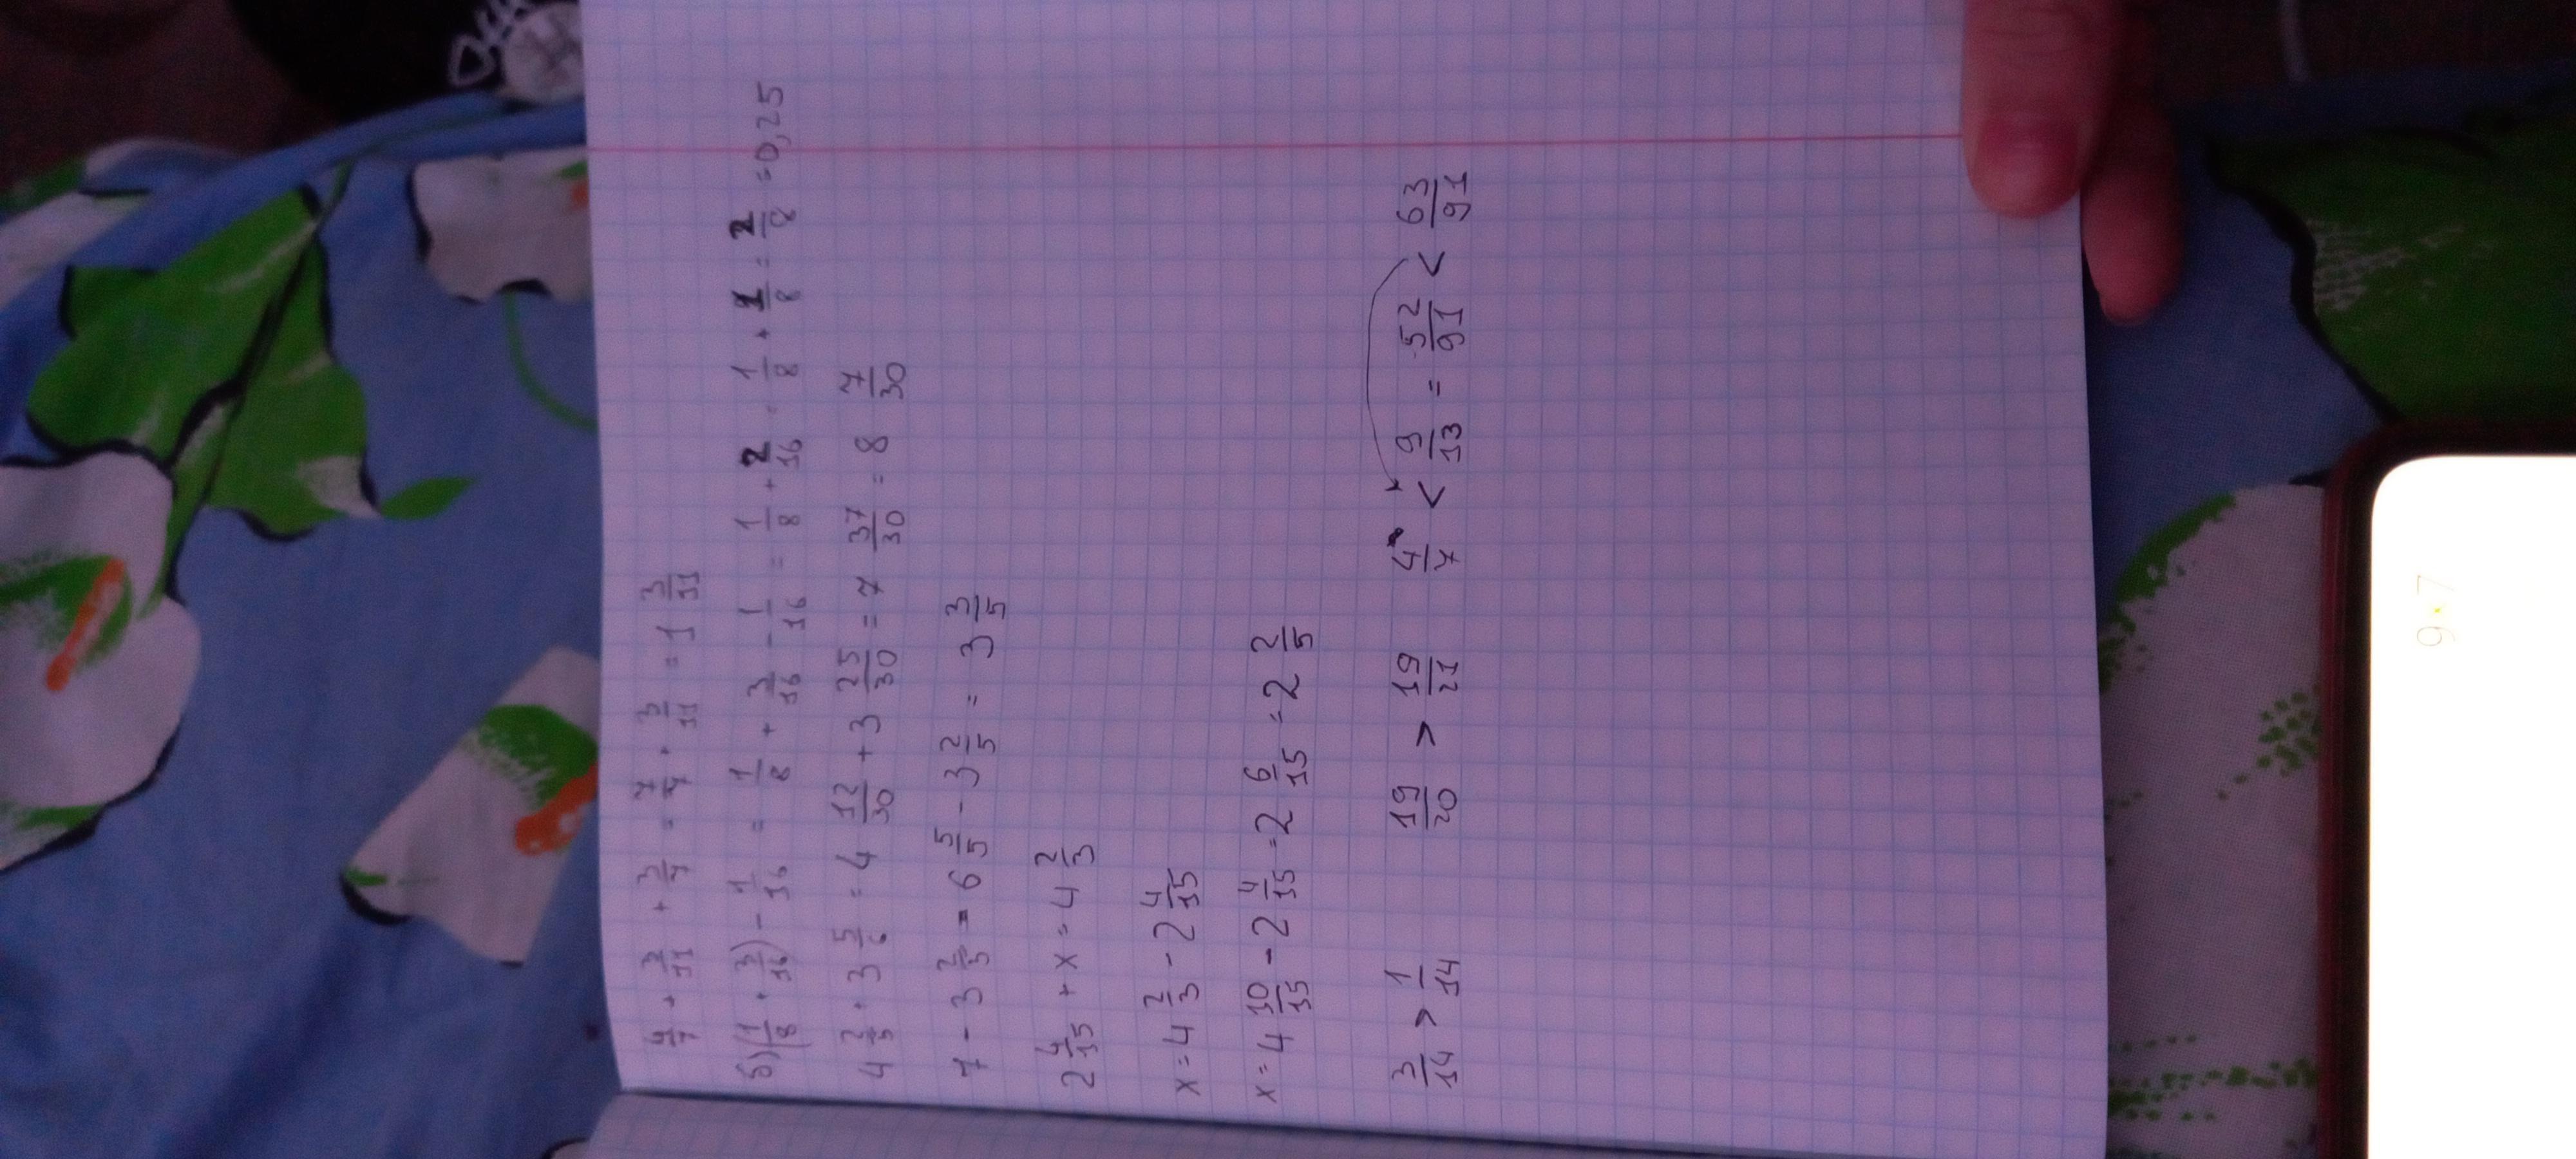 4/7 + 3/11 + 3/7 = 7/7 + 3/11 = 1 3/11
б) (1/8 + 3/16) - 1/16 = 1/8 + 3/16 - 1/16 = 1/8 + 2/16 = 1/8 + 1/8 = 2/8 = 0,25
4 2/5 + 3 5/6 = 4 12/30 + 3 25/30 = 7 37/30 = 8 7/30
7 - 3 2/5 = 6 5/5 - 3 2/5 = 3 3/5
2 4/15 + x = 4 2/3
x = 4 2/3 - 2 4/15
x = 4 10/15 - 2 4/15 = 2 6/15 = 2 2/5
3/14 > 1/14 19/20 > 19/21 4/7 < 9/13 = 52/91 < 63/91